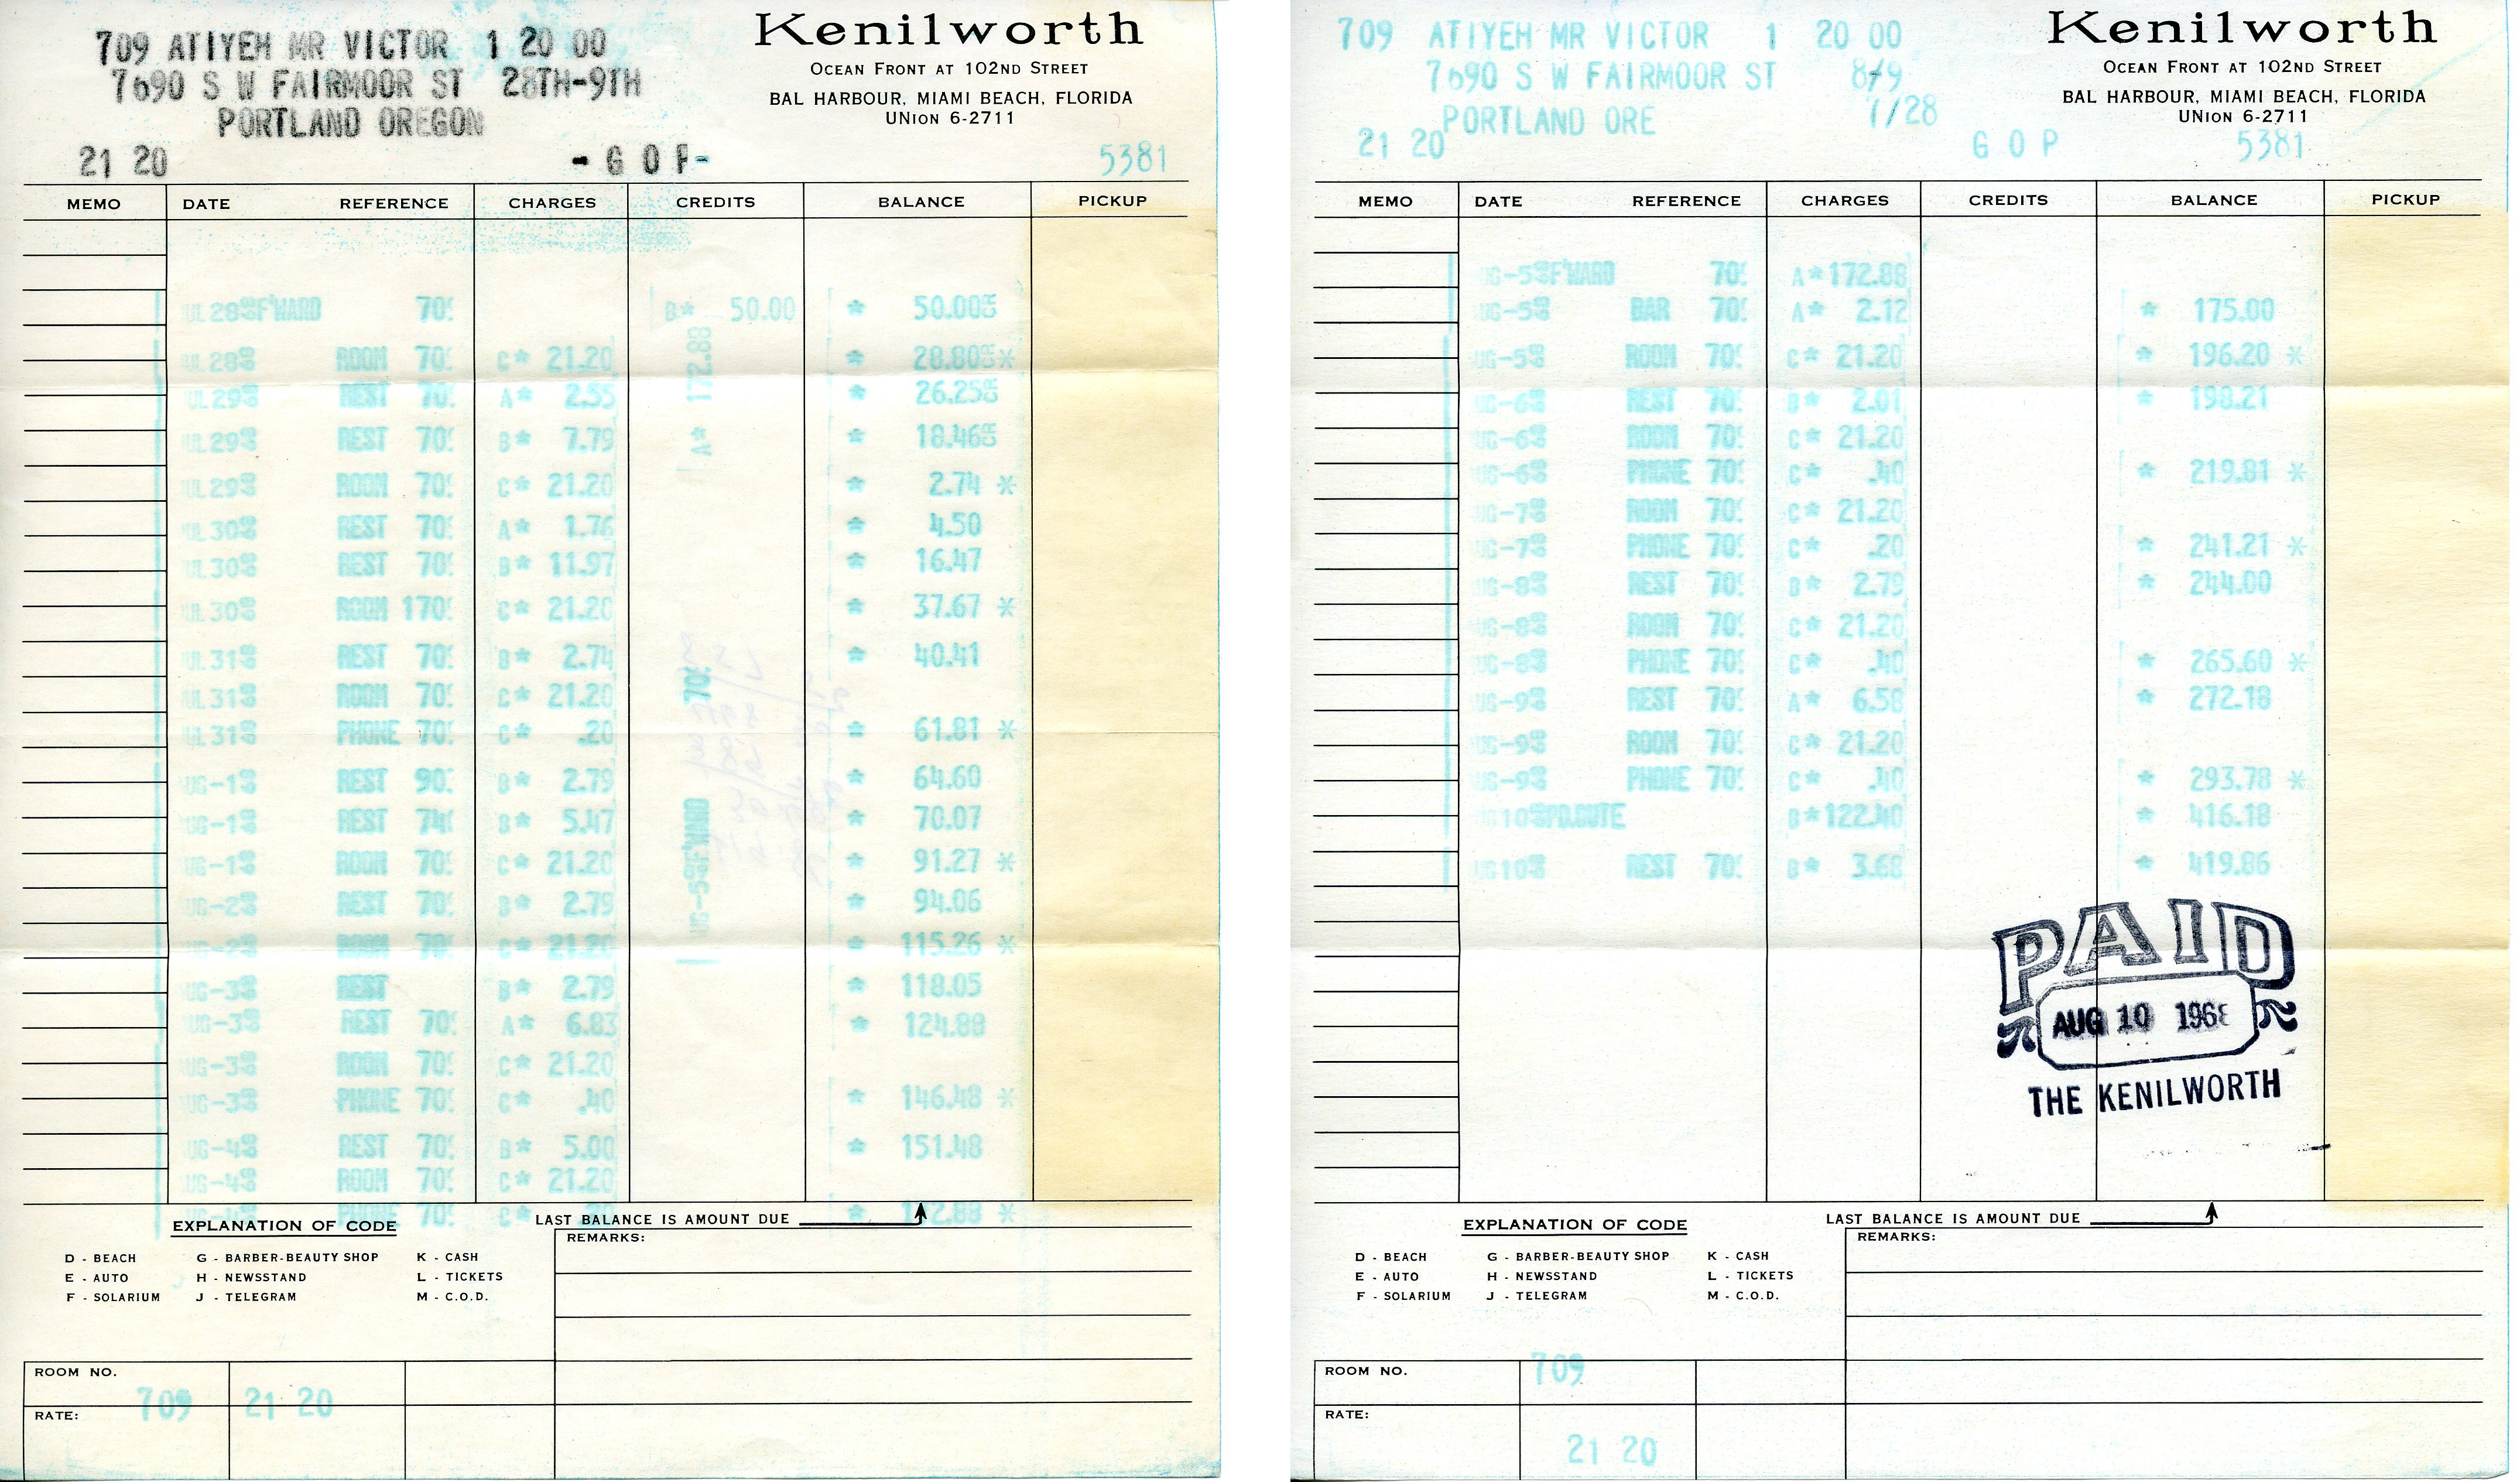 709 ATIYEH MR VICTOR 1 20 00
7690 S W FAIRMOOR ST 28TH-9TH
PORTLAND OREGON
21 20 - G O P -
5381
Kenilworth
OCEAN FRONT AT 102ND STREET
BAL HARBOUR, MIAMI BEACH, FLORIDA
UNION 6-2711
MEMO DATE REFERENCE CHARGES CREDITS BALANCE PICKUP
UL 28 F'WARD 70 B* 50.00 * 50.00
UL 28 ROOM 70 C* 21.20 * 28.80 *
UL 29 REST 70 A* 2.55 * 26.25
UL 29 REST 70 B* 7.79 * 18.46
UL 29 ROOM 70 C* 21.20 * 2.74 *
UL 30 REST 70 A* 1.76 * 4.50
UL 30 REST 70 B* 11.97 * 16.47
UL 30 ROOM 170 C* 21.20 * 37.67 *
UL 31 REST 70 B* 2.74 * 40.41
UL 31 ROOM 70 C* 21.20
UL 31 PHONE 70 C* .20 * 61.81 *
UG-1 REST 90 B* 2.79 * 64.60
UG-1 REST 74 B* 5.47 * 70.07
UG-1 ROOM 70 C* 21.20 * 91.27 *
UG-2 REST 70 B* 2.79 * 94.06
UG-2 ROOM 70 C* 21.20 * 115.26 *
UG-3 REST B* 2.79 * 118.05
UG-3 REST 70 A* 6.83 * 124.88
UG-3 ROOM 70 C* 21.20
UG-3 PHONE 70 C* .40 * 146.48 *
UG-4 REST 70 B* 5.00 * 151.48
UG-4 ROOM 70 C* 21.20
PHONE 70 C* 2.88 *
UG-5 F'WARD 70 A* 172.88
EXPLANATION OF CODE
LAST BALANCE IS AMOUNT DUE
D - BEACH G - BARBER-BEAUTY SHOP K - CASH
E - AUTO H - NEWSSTAND L - TICKETS
F - SOLARIUM J - TELEGRAM M - C.O.D.
REMARKS:
ROOM NO. 709 21 20
RATE:
709 ATIYEH MR VICTOR 1 20 00
7690 S W FAIRMOOR ST 8/9
PORTLAND ORE 7/28
21 20 G O P 5381
Kenilworth
OCEAN FRONT AT 102ND STREET
BAL HARBOUR, MIAMI BEACH, FLORIDA
UNION 6-2711
MEMO DATE REFERENCE CHARGES CREDITS BALANCE PICKUP
UG-5 F'WARD 70 A* 172.88
UG-5 BAR 70 A* 2.12 * 175.00
UG-5 ROOM 70 C* 21.20 * 196.20 *
UG-6 REST 70 B* 2.01 * 198.21
UG-6 ROOM 70 C* 21.20
UG-6 PHONE 70 C* .40 * 219.81 *
UG-7 ROOM 70 C* 21.20
UG-7 PHONE 70 C* .20 * 241.21 *
UG-8 REST 70 B* 2.79 * 244.00
UG-8 ROOM 70 C* 21.20
UG-8 PHONE 70 C* .40 * 265.60 *
UG-9 REST 70 A* 6.58 * 272.18
UG-9 ROOM 70 C* 21.20
UG-9 PHONE 70 C* .40 * 293.78 *
UG 10 PD.OUTE B* 122.40 * 416.18
UG 10 REST 70 B* 3.68 * 419.86
PAID
AUG 10 196
THE KENILWORTH
EXPLANATION OF CODE
LAST BALANCE IS AMOUNT DUE
D - BEACH G - BARBER-BEAUTY SHOP K - CASH
E - AUTO H - NEWSSTAND L - TICKETS
F - SOLARIUM J - TELEGRAM M - C.O.D.
REMARKS:
ROOM NO. 709
RATE: 21 20